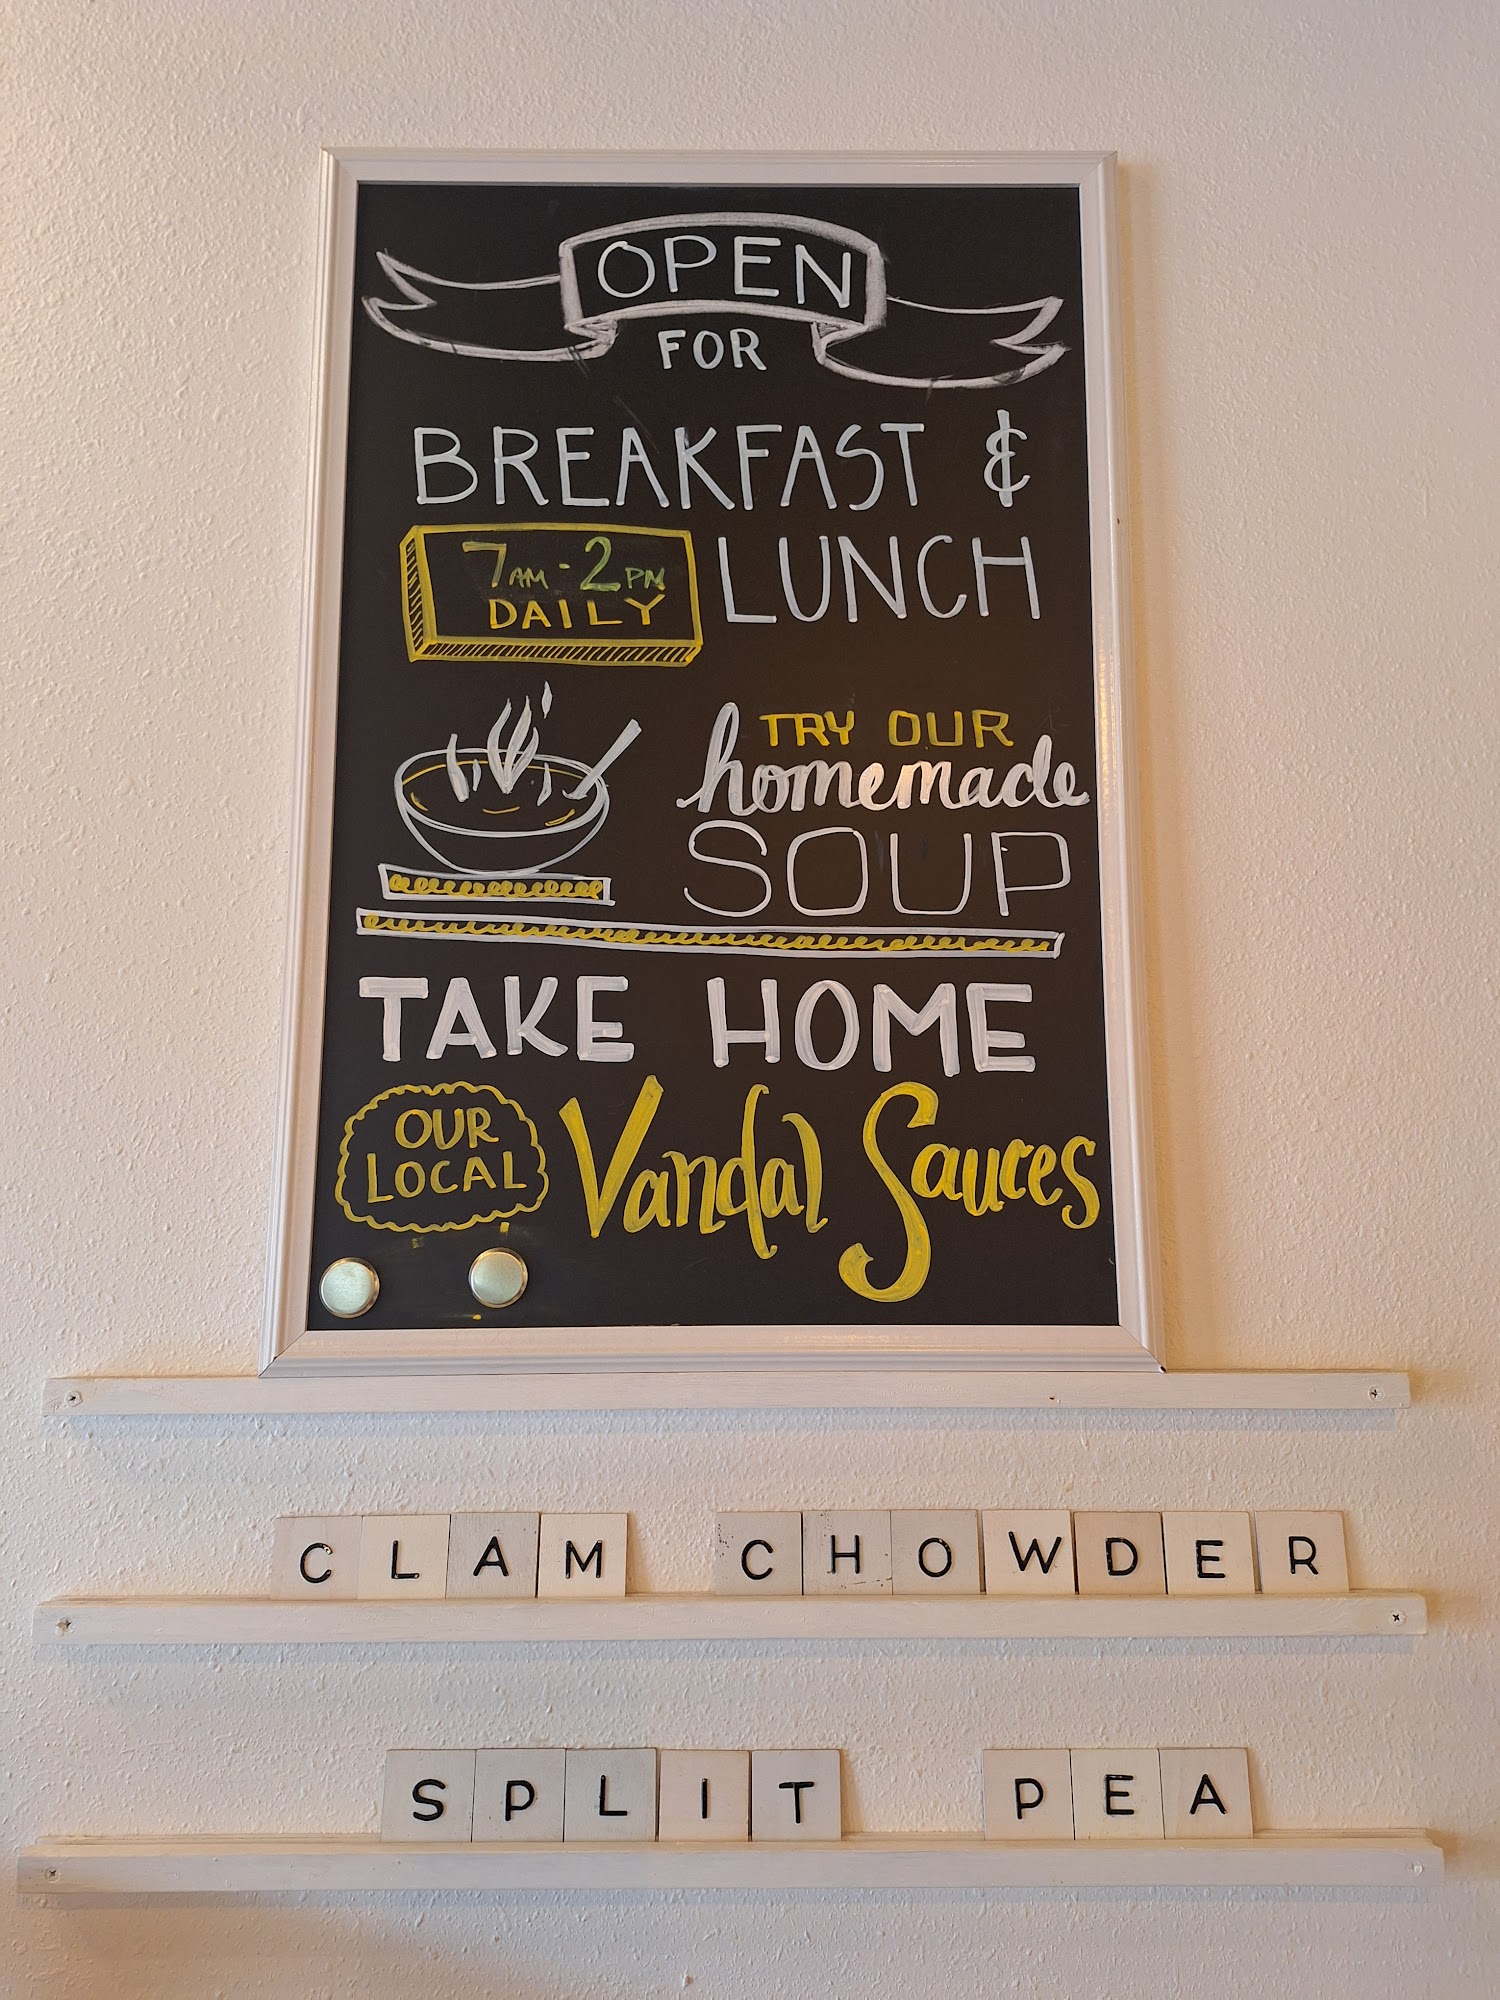 OPEN
FOR
BREAKFAST &
7AM-2PM
DAILY
LUNCH
TRY OUR
homemade
SOUP
TAKE HOME
OUR
LOCAL
Vandal Sauces
CLAM CHOWDER
SPLIT PEA